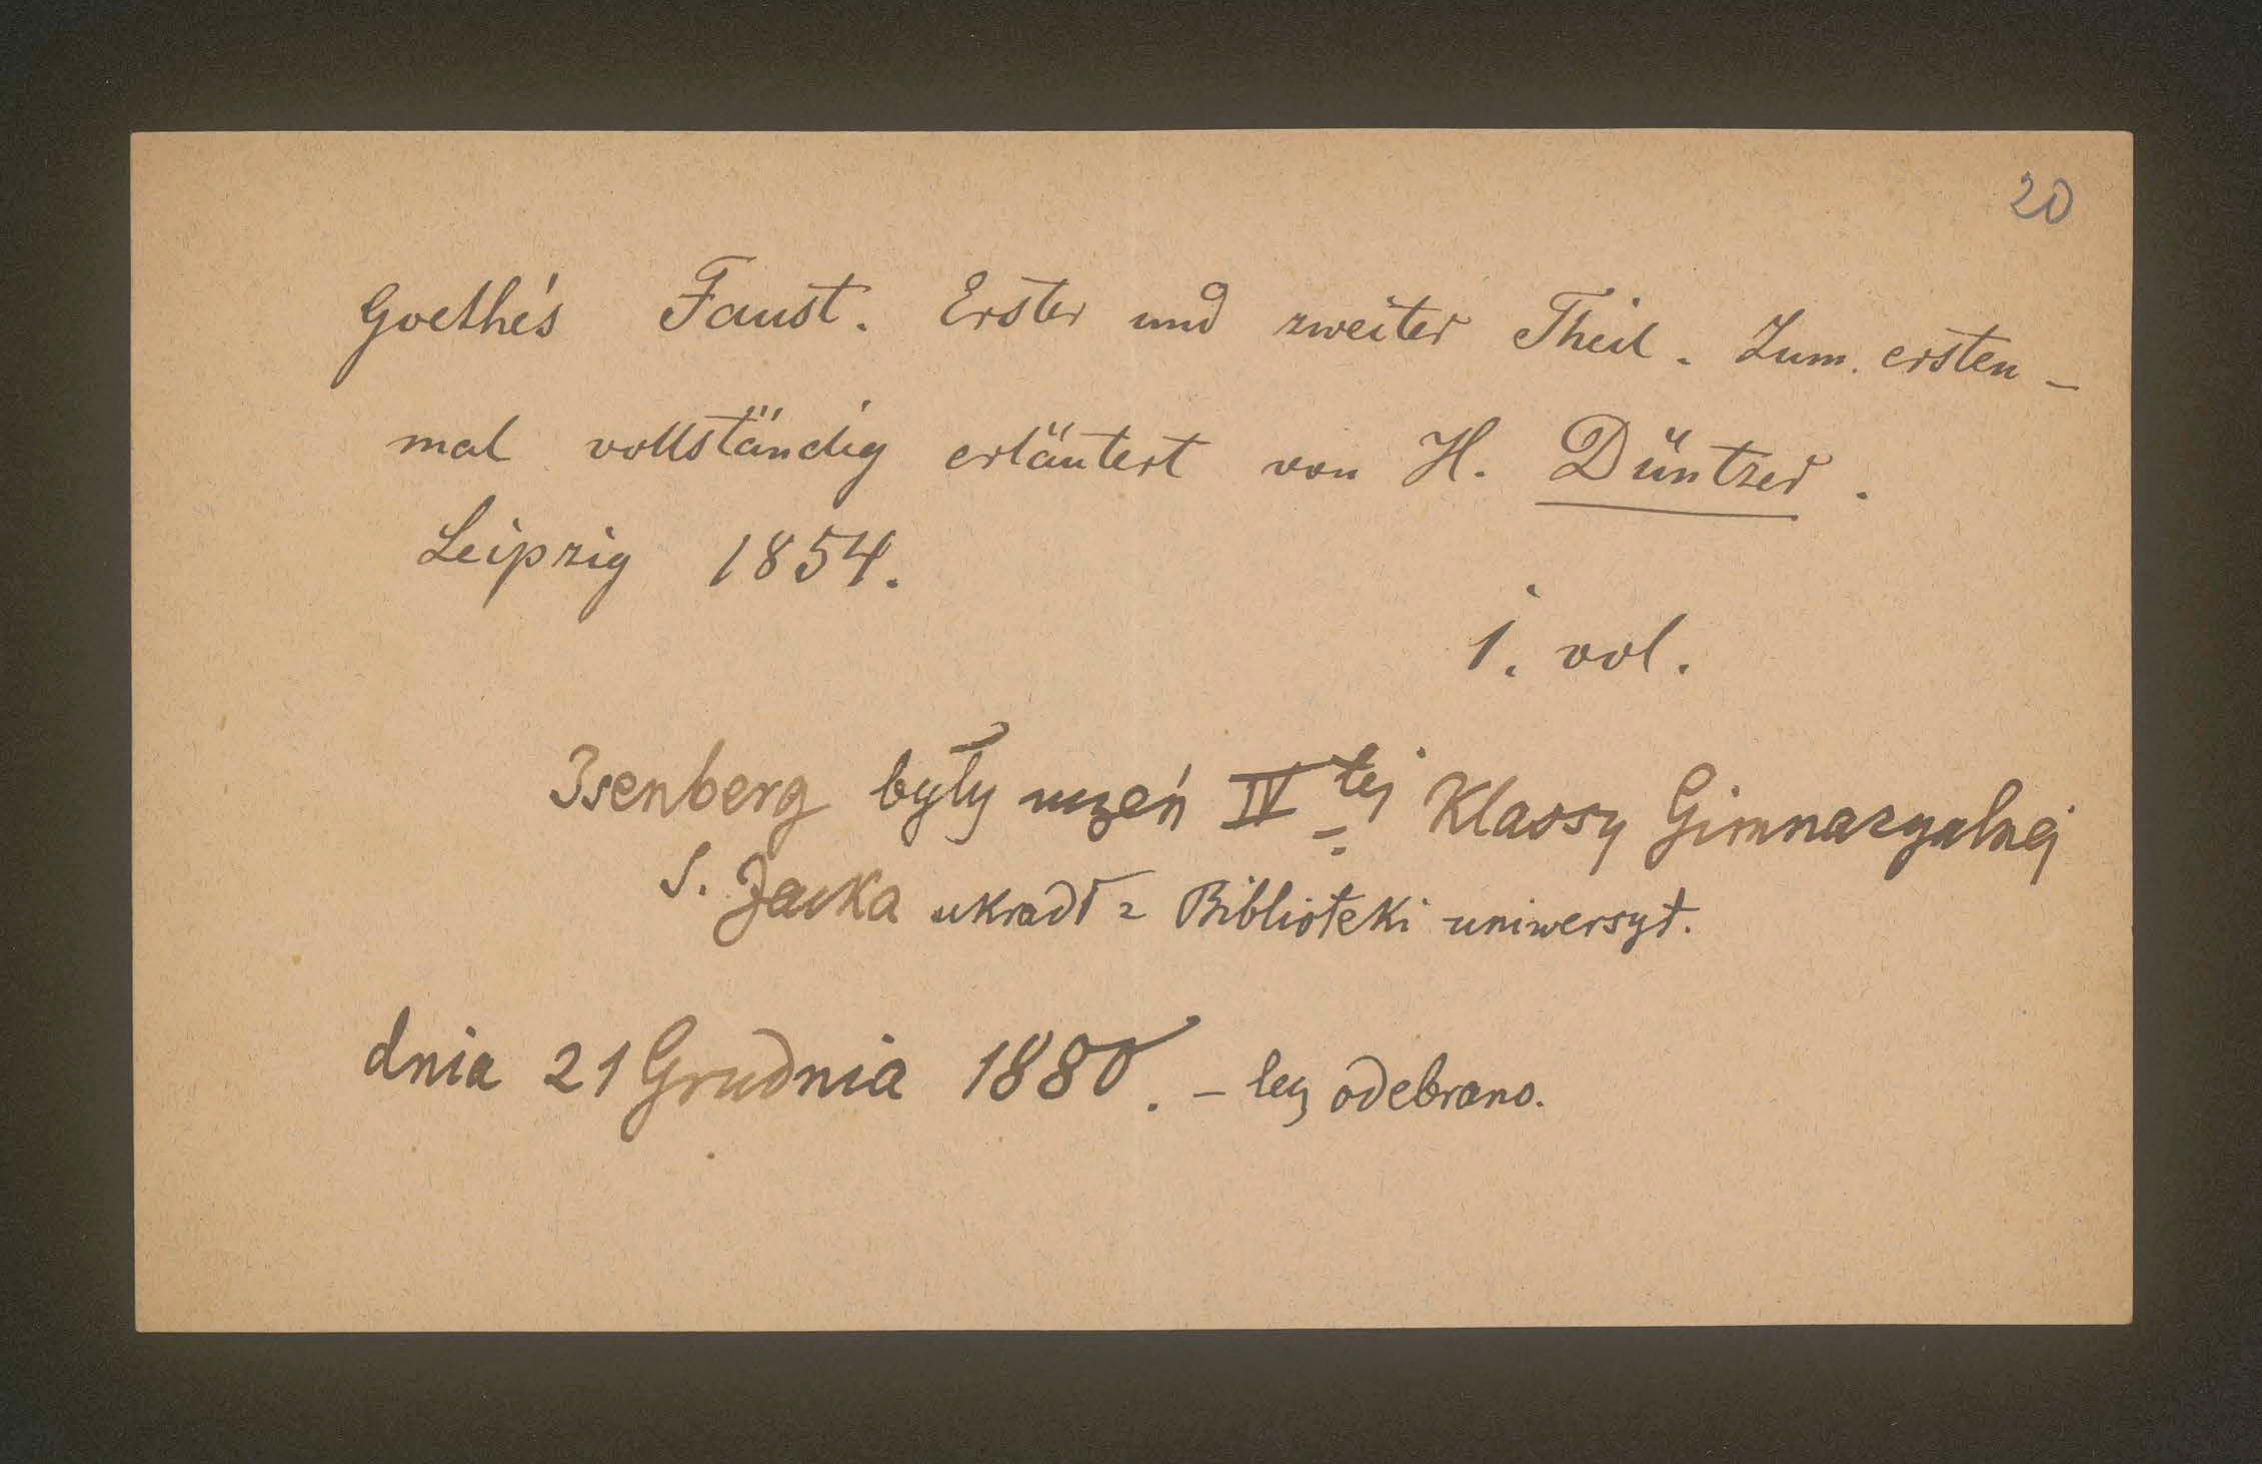 20
Goethe's Faust. Erster und zweiter Theil. Zum ersten-
mal vollständig erläutert von H. Düntzer.
Leipzig 1854.
1. vol.
Isenberg były uczeń IVtej Klassy Gimnazyalnej
S. Jacka ukradł z Biblioteki uniwersyt.
dnia 21 Grudnia 1880. – lecz odebrano.